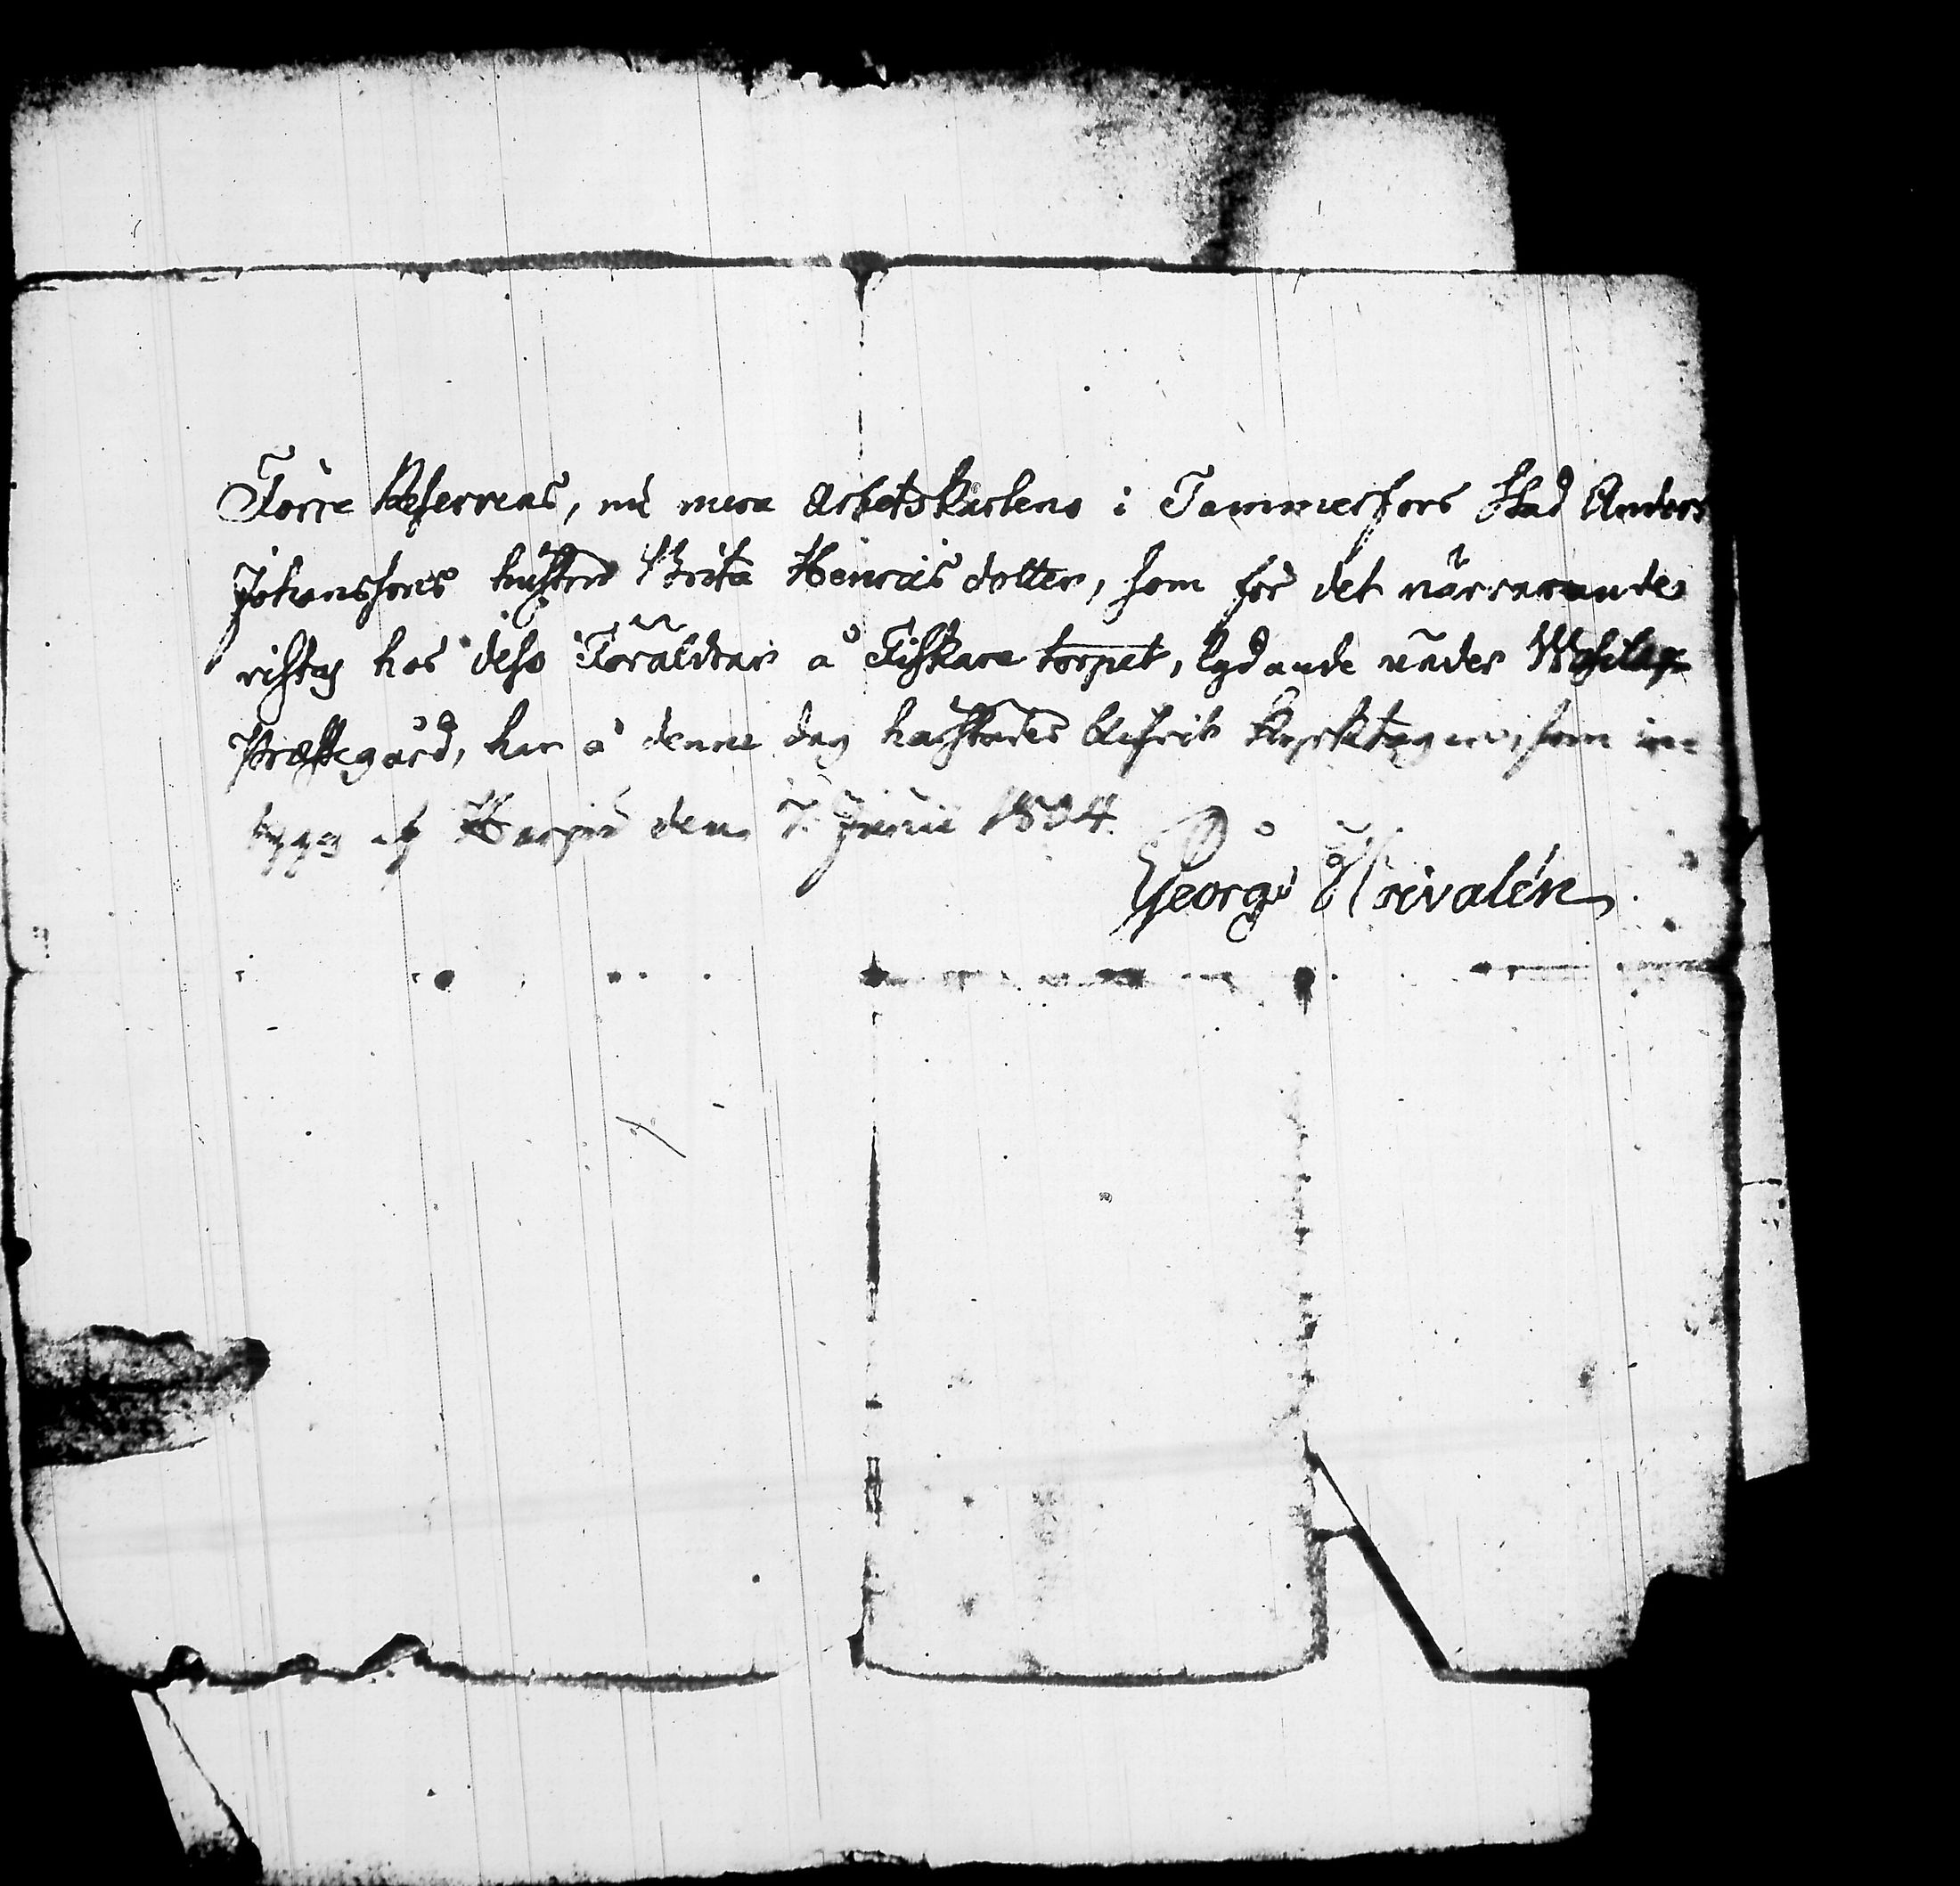 Förre Reserveus, nu mera Arbetskarlens i Tammerfors Stad Anders
Johanssons hustru Brita Henricsdotter, som för det närvarande
vistas hos dess Föräldrar å Fiskare torpet, lydande under
Præstegård, har å denne dag härstädes blifvit kyrktagen, som in-
tygas af Karpio den 7. Junii 1834.
Georg